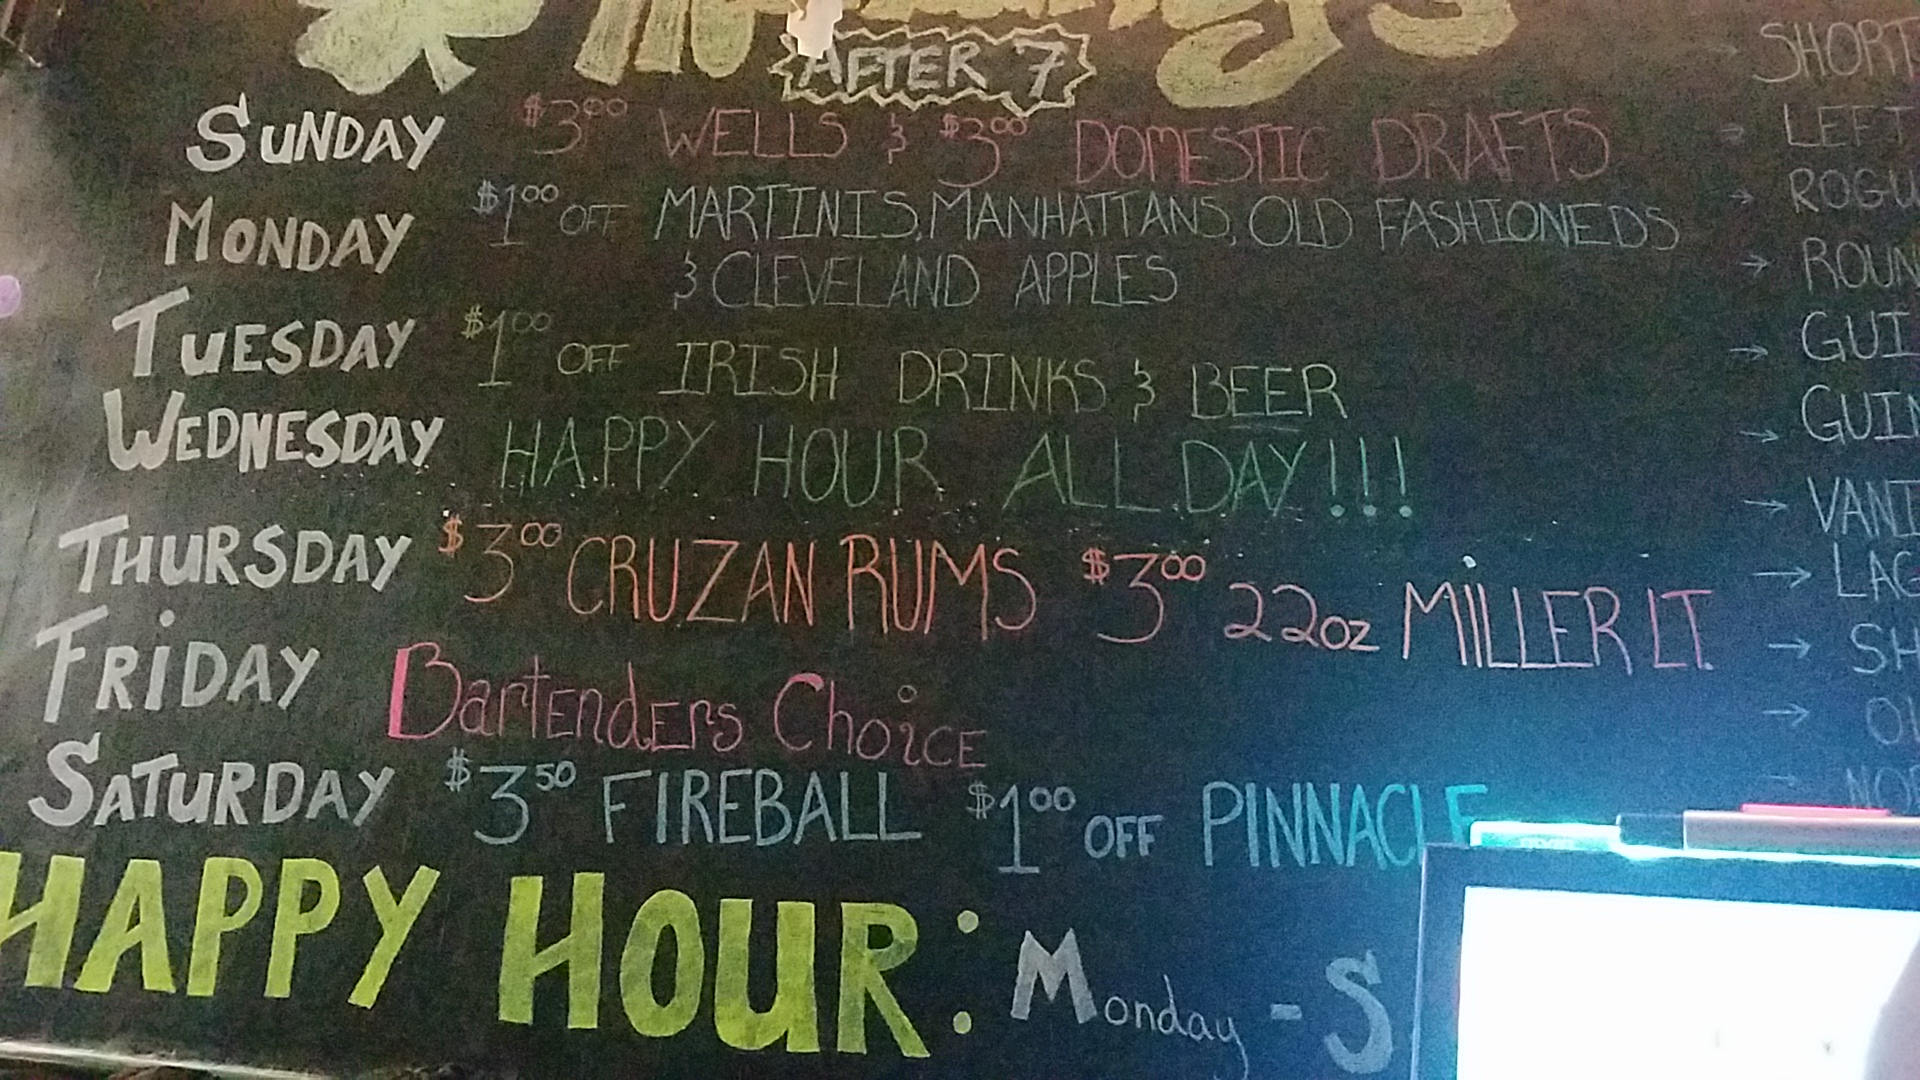 AFTER 7
SUNDAY $3.00 WELLS & $3.00 DOMESTIC DRAFTS
MONDAY $1.00 OFF MARTINIS, MANHATTANS, OLD FASHIONEDS
& CLEVELAND APPLES
TUESDAY $1.00 OFF IRISH DRINKS & BEER
WEDNESDAY HAPPY HOUR ALL DAY!!!
THURSDAY $3.00 CRUZAN RUMS $3.00 22oz MILLER LT.
FRIDAY BartEndErs ChoicE
SATURDAY $3.50 FIREBALL $1.00 OFF PINNACLE
HAPPY HOUR: Monday - S
SHORT
→ LEFT
→ ROGU
→ ROUN
→ GUI
→ GUIN
→ VANI
→ LAG
→ SH
→ OL
→ NOR